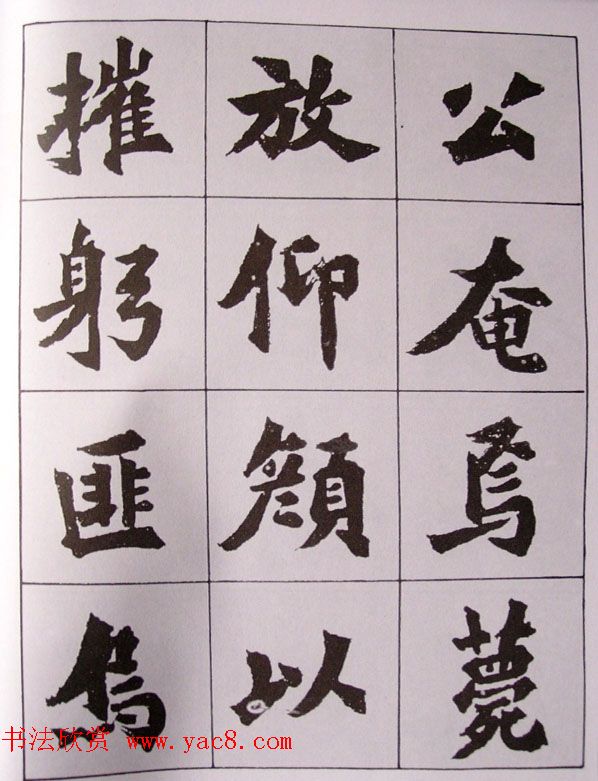 公奄焉薨
放仰顏以
摧躬匪
书法欣赏 www.yac8.com